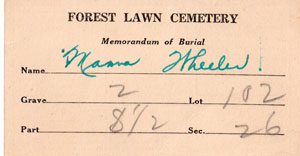 FOREST LAWN CEMETERY
Memorandum of Burial
Name Wheeler
Grave 2 Lot 102
Part S 1/2 Sec. 26